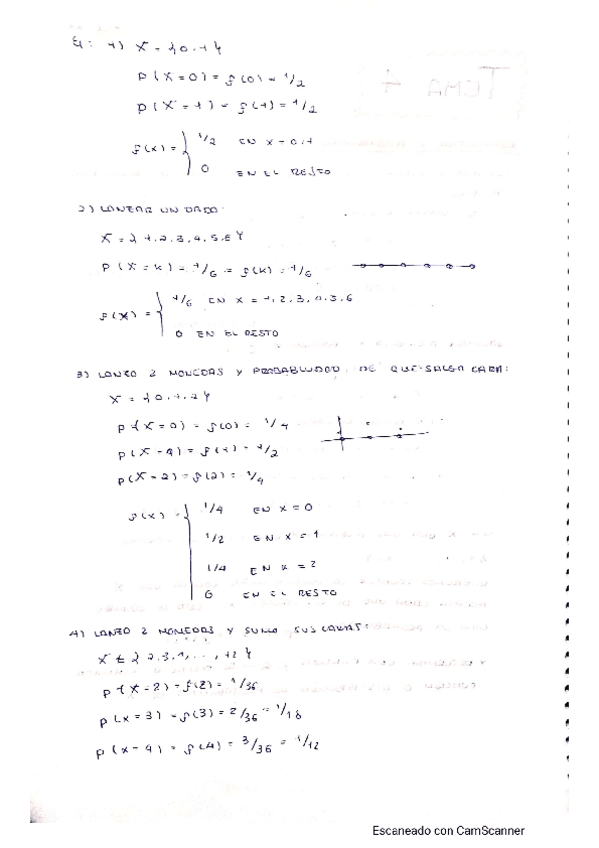 Ej: 1) X = {0,1}
P(X=0) = f(0) = 1/2
P(X=1) = f(1) = 1/2
f(x) = { 1/2 EN X = 0,1
0 EN EL RESTO
2) LANZAR UN DADO:
X = {1,2,3,4,5,6}
P(X=K) = 1/6 = f(K) = 1/6
f(X) = { 1/6 EN X = 1,2,3,4,5,6
0 EN EL RESTO
3) LANZO 2 MONEDAS Y PROBABLIDAD DE QUE SALGA CARA:
X = {0,1,2}
P(X=0) = f(0) = 1/4
P(X=1) = f(1) = 1/2
P(X=2) = f(2) = 1/4
f(x) = { 1/4 EN X = 0
1/2 EN X = 1
1/4 EN X = 2
0 EN EL RESTO
4) LANZO 2 MONEDAS Y SUMO SUS CARAS:
X = {2,3,4,...,12}
P(X=2) = f(2) = 1/36
P(X=3) = f(3) = 2/36 = 1/18
P(X=4) = f(4) = 3/36 = 1/12
Escaneado con CamScanner